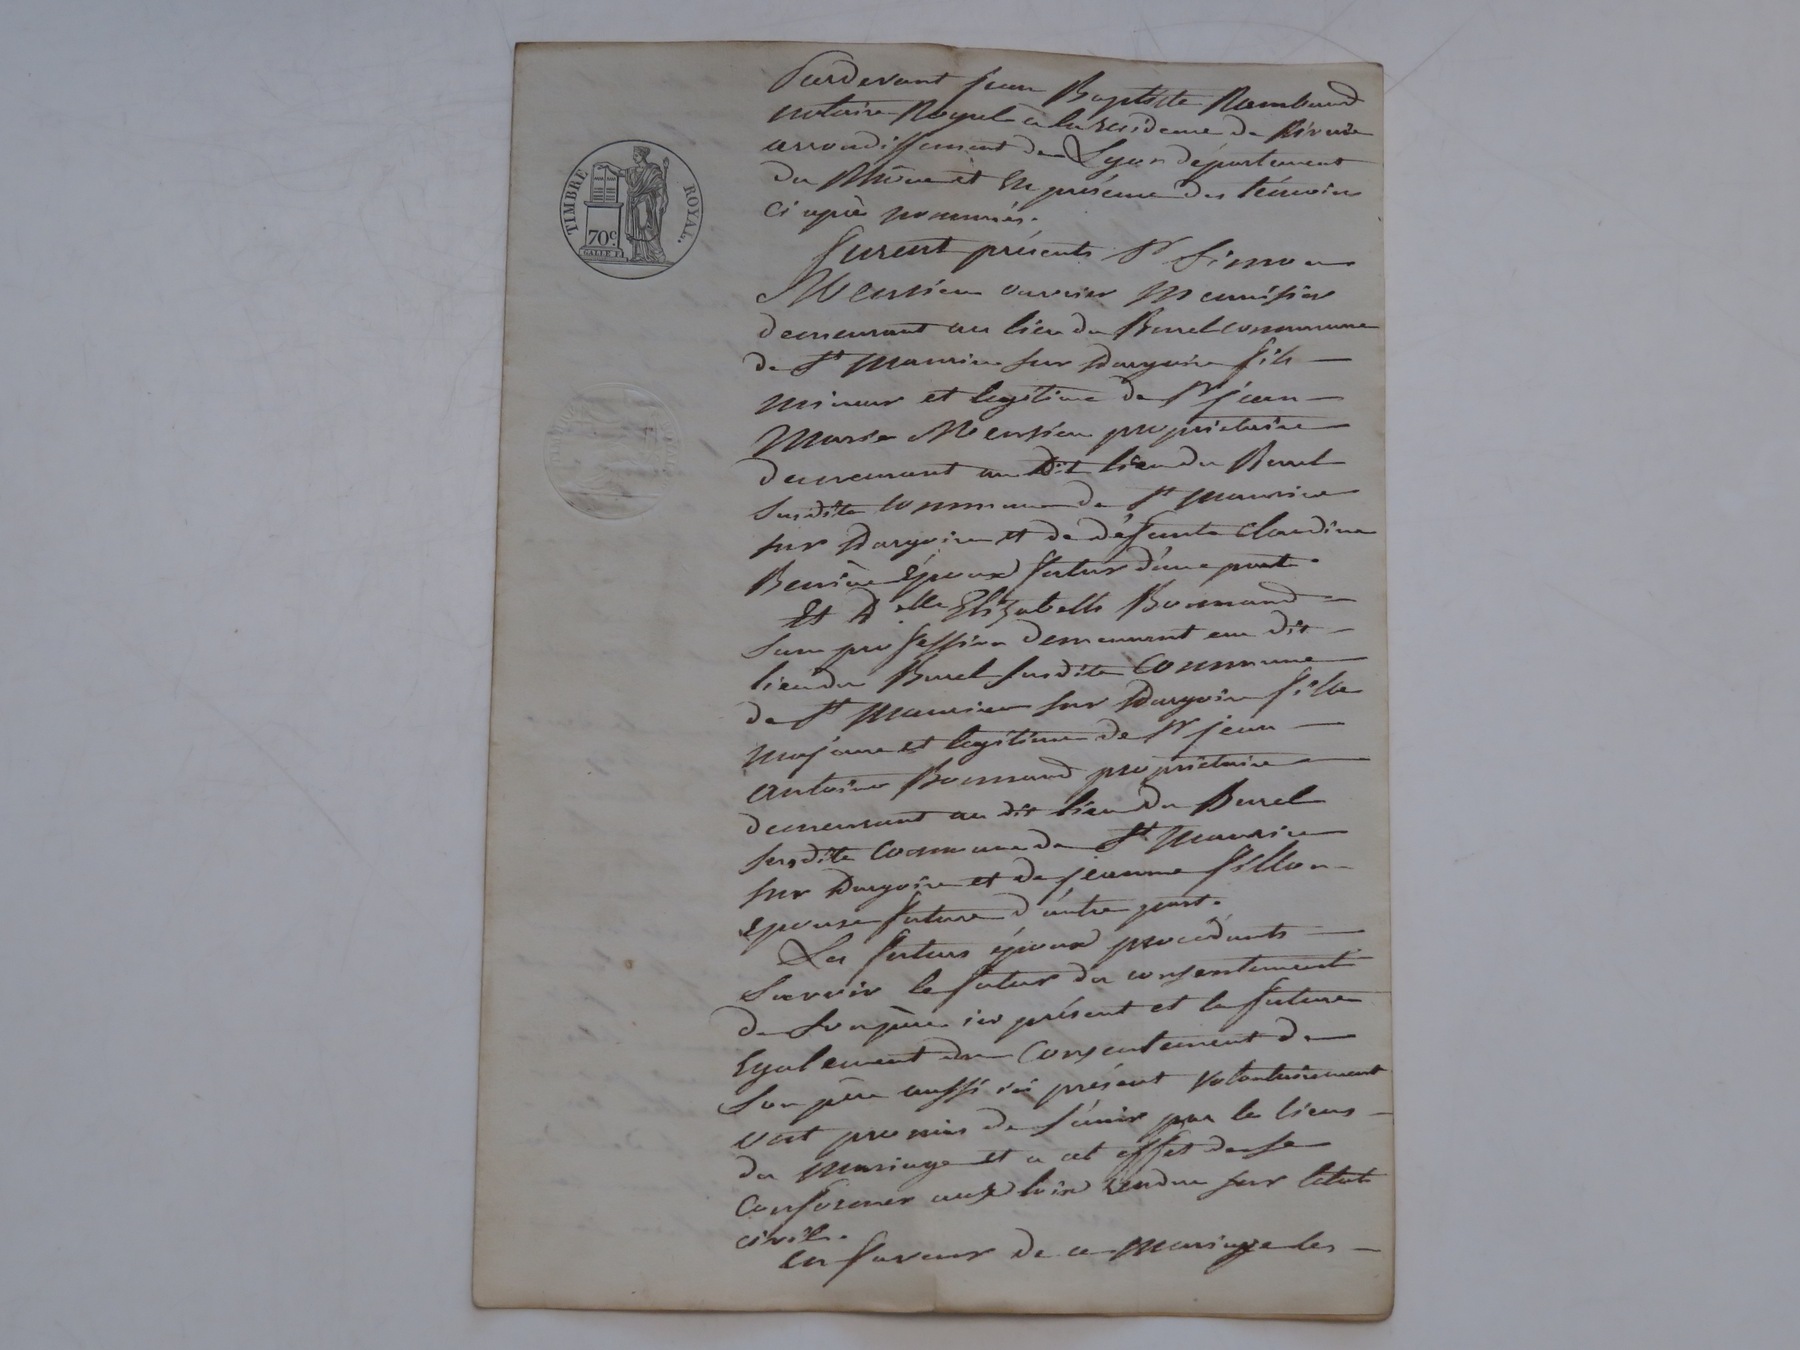 TIMBRE ROYAL.
70c.
GALLE F.
Pardevant jean Baptiste Rambaud
notaire Royal a la residence de Riverie
arrondissement de Lyon département
du Rhône et En présence des témoins
ci après nommés.
furent présents Sr Simon
ouvrier Menuisier
demeurant au lieu du Burel commune
de St Maurice sur Dargoire fils
mineur et legitime de Sr jean
Marie propriétaire
demeurant au dit lieu du Burel
susdite commune de St Maurice
sur Dargoire et de défunte Claudine
époux futur d'une part.
Et Delle Elizabeth Bonnand
sans profession demeurant au dit
lieu du Burel susdite Commune
de St Maurice sur Dargoire fille
majeure et legitime de Sr jean
antoine Bonnand propriétaire
demeurant au dit lieu du Burel
susdite Commune de St Maurice
sur Dargoire et de jeanne fillon
epouse future d'autre part.
Les futurs époux procédants
savoir le futur du consentement
de son père ici présent et la future
Egalement du Consentement de
son père aussi ici présent volontairement
ont promis de s'unir par les liens
du mariage et a cet effet de se
Conformer aux loix rendue sur l'état
civil.
en faveur de ce Mariage les